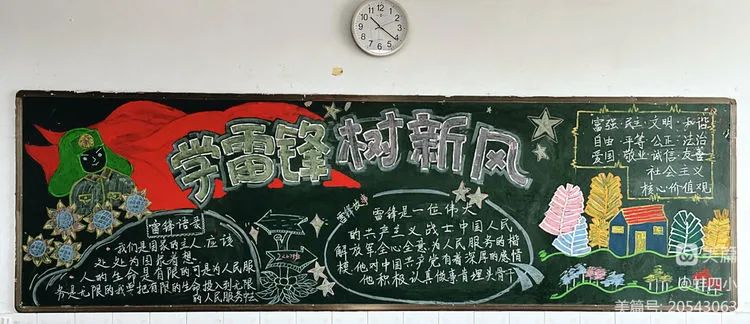 学雷锋树新风
富强·民主·文明·和谐
自由·平等·公正·法治
爱国·敬业·诚信·友善
社会主义
核心价值观
雷锋语录
·我们是国家的主人应该
处处为国家着想
·人的生命是有限的可是为人民服
务是无限的我要把有限的生命投入到无限
的为人民服务中去
雷锋是一位伟大
的共产主义战士中国人民
解放军全心全意为人民服务的楷
模，他对中国共产党有着深厚的感情
他积极认真做事肯埋头骨干
美篇
美篇号: 20543063